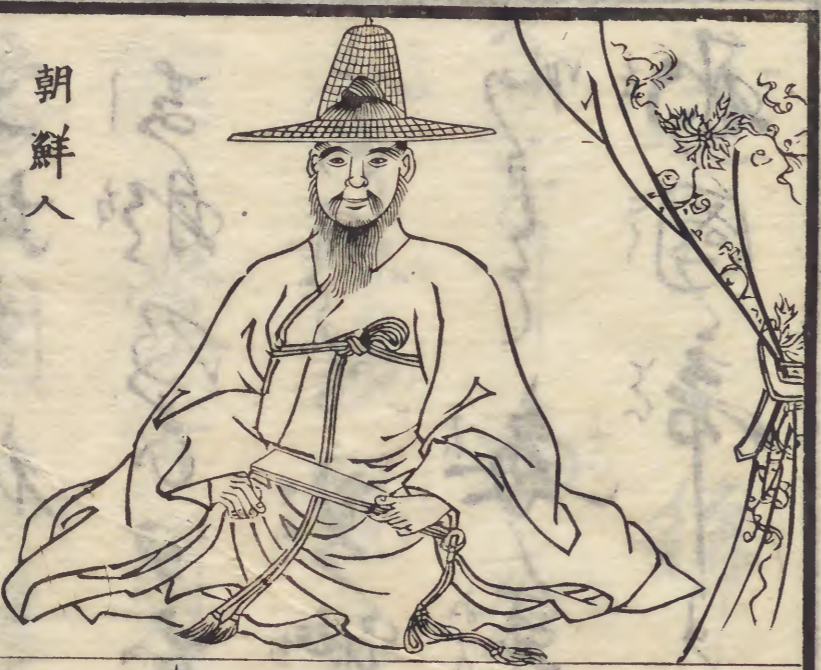 朝鮮人